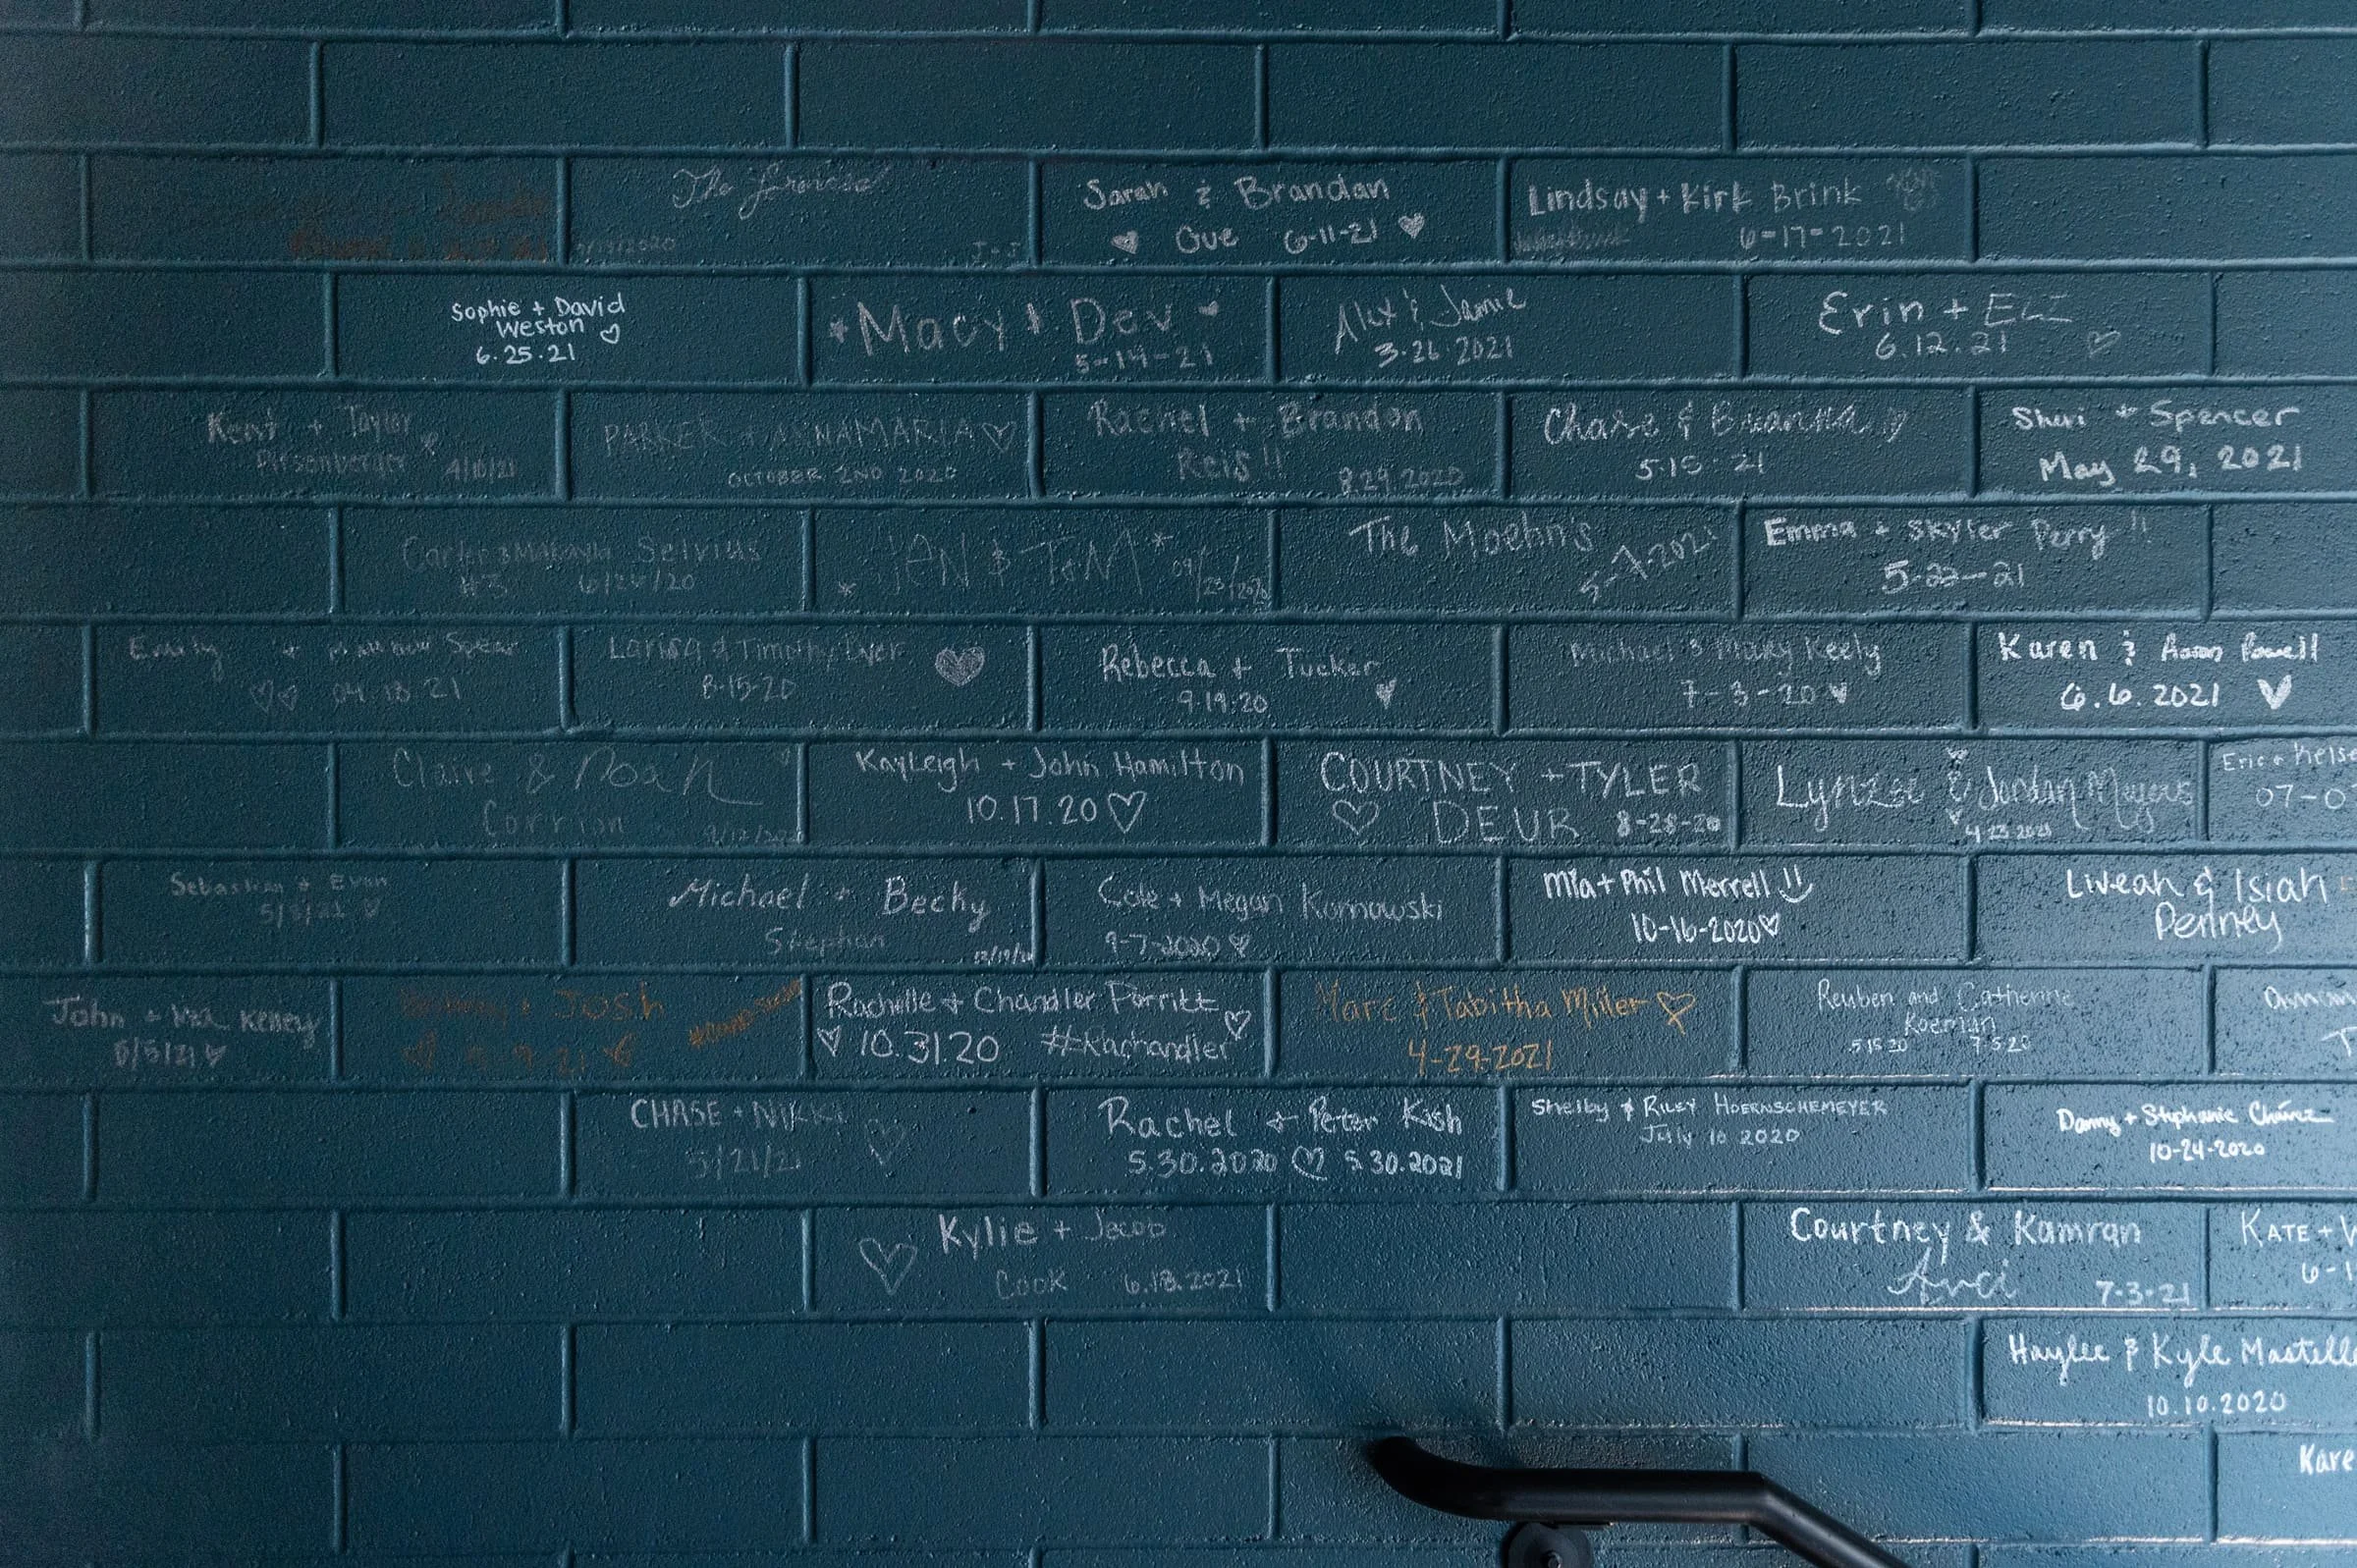 The
2020
J-J
Sarah & Brandan
Gve 6-11-21
Lindsay + Kirk Brink
6-17-2021
Sophie + David
Weston
6.25.21
Macy & Dev
5-14-21
Alex & Jamie
3.26.2021
Erin + ELI
6.12.21
Kent + Taylor
4/10/21
PARKER + ANNAMARIA
OCTOBER 2ND 2020
Rachel + Brandon
Reis!!
8.29.2020
Chase & Brianna
5.15.21
Sheri + Spencer
May 29, 2021
Selvius
#3 6/20
JEN & TOM
09/23/2020
The Moehn's
2021
Emma + Skyler Perry!!
5-22-21
Emily + Matthew Spear
04.18.21
Larisa & Timothy Dyer
8-15-20
Rebecca + Tucker
9.19.20
Michael & Mary Keely
7-3-20
Karen & Aaron Powell
6.6.2021
Claire & Noah
Corrion
Kayleigh + John Hamilton
10.17.20
COURTNEY + TYLER
DEUR 8-28-20
Lynzee & Jordan Meyers
4 23 2021
Eric + Kelse
07-0
Sebastian + Evan
Michael + Becky
Stephan
Cole + Megan Kornowski
9-7-2020
Mia + Phil Merrell
10-16-2020
Liveah & Isiah
Penney
John + Kelley
6/5/21
+ Josh
Rachelle + Chandler Porritt
10.31.20 #Rachandler
Marc & Tabitha Miller
4-29-2021
Reuben and Catherine
Koeman
5 15 20 7 5 20
T
CHASE + NIKKI
5/21/21
Rachel + Peter Kish
5.30.2020 5.30.2021
Shelby & Riley Hoernschemeyer
July 10 2020
Danny + Stephanie
10-24-2020
Kylie + Jacob
Cook 6.18.2021
Courtney & Kamran
Avci 7-3-21
KATE + W
6-1
Haylee & Kyle Mastell
10.10.2020
Kare